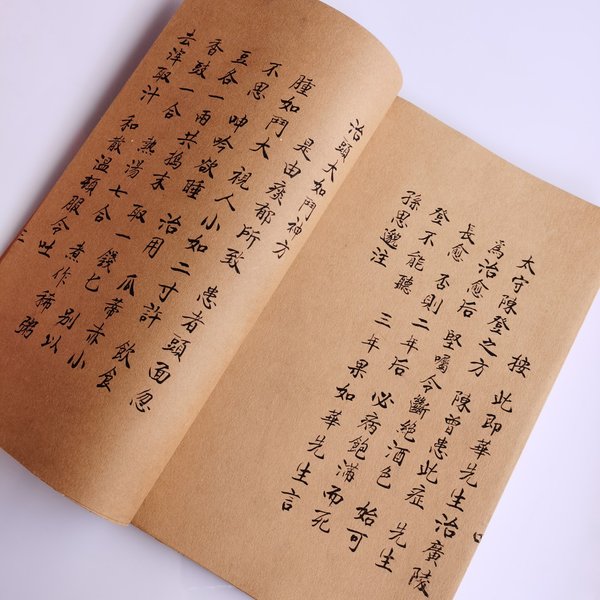 按 此即華先生治廣陵
太守陳登之方 陳曾患此症 先生
為治愈后 堅囑令斷絕酒色 始可
長愈 否則二年后 必病飽滿而死
登不能聽 三年果如華先生言
孫思邈注
治頭大如鬥神方
是由痰郁所致 患者頭面忽
腫如鬥大 視人小如二寸許 飲食
不思 呻吟欲睡 治用 瓜蒂赤小
豆各一兩共搗末 取一錢匕 別以
香豉一合 熱湯七合 煮作稀粥
去滓取汁 和散溫頓服令吐